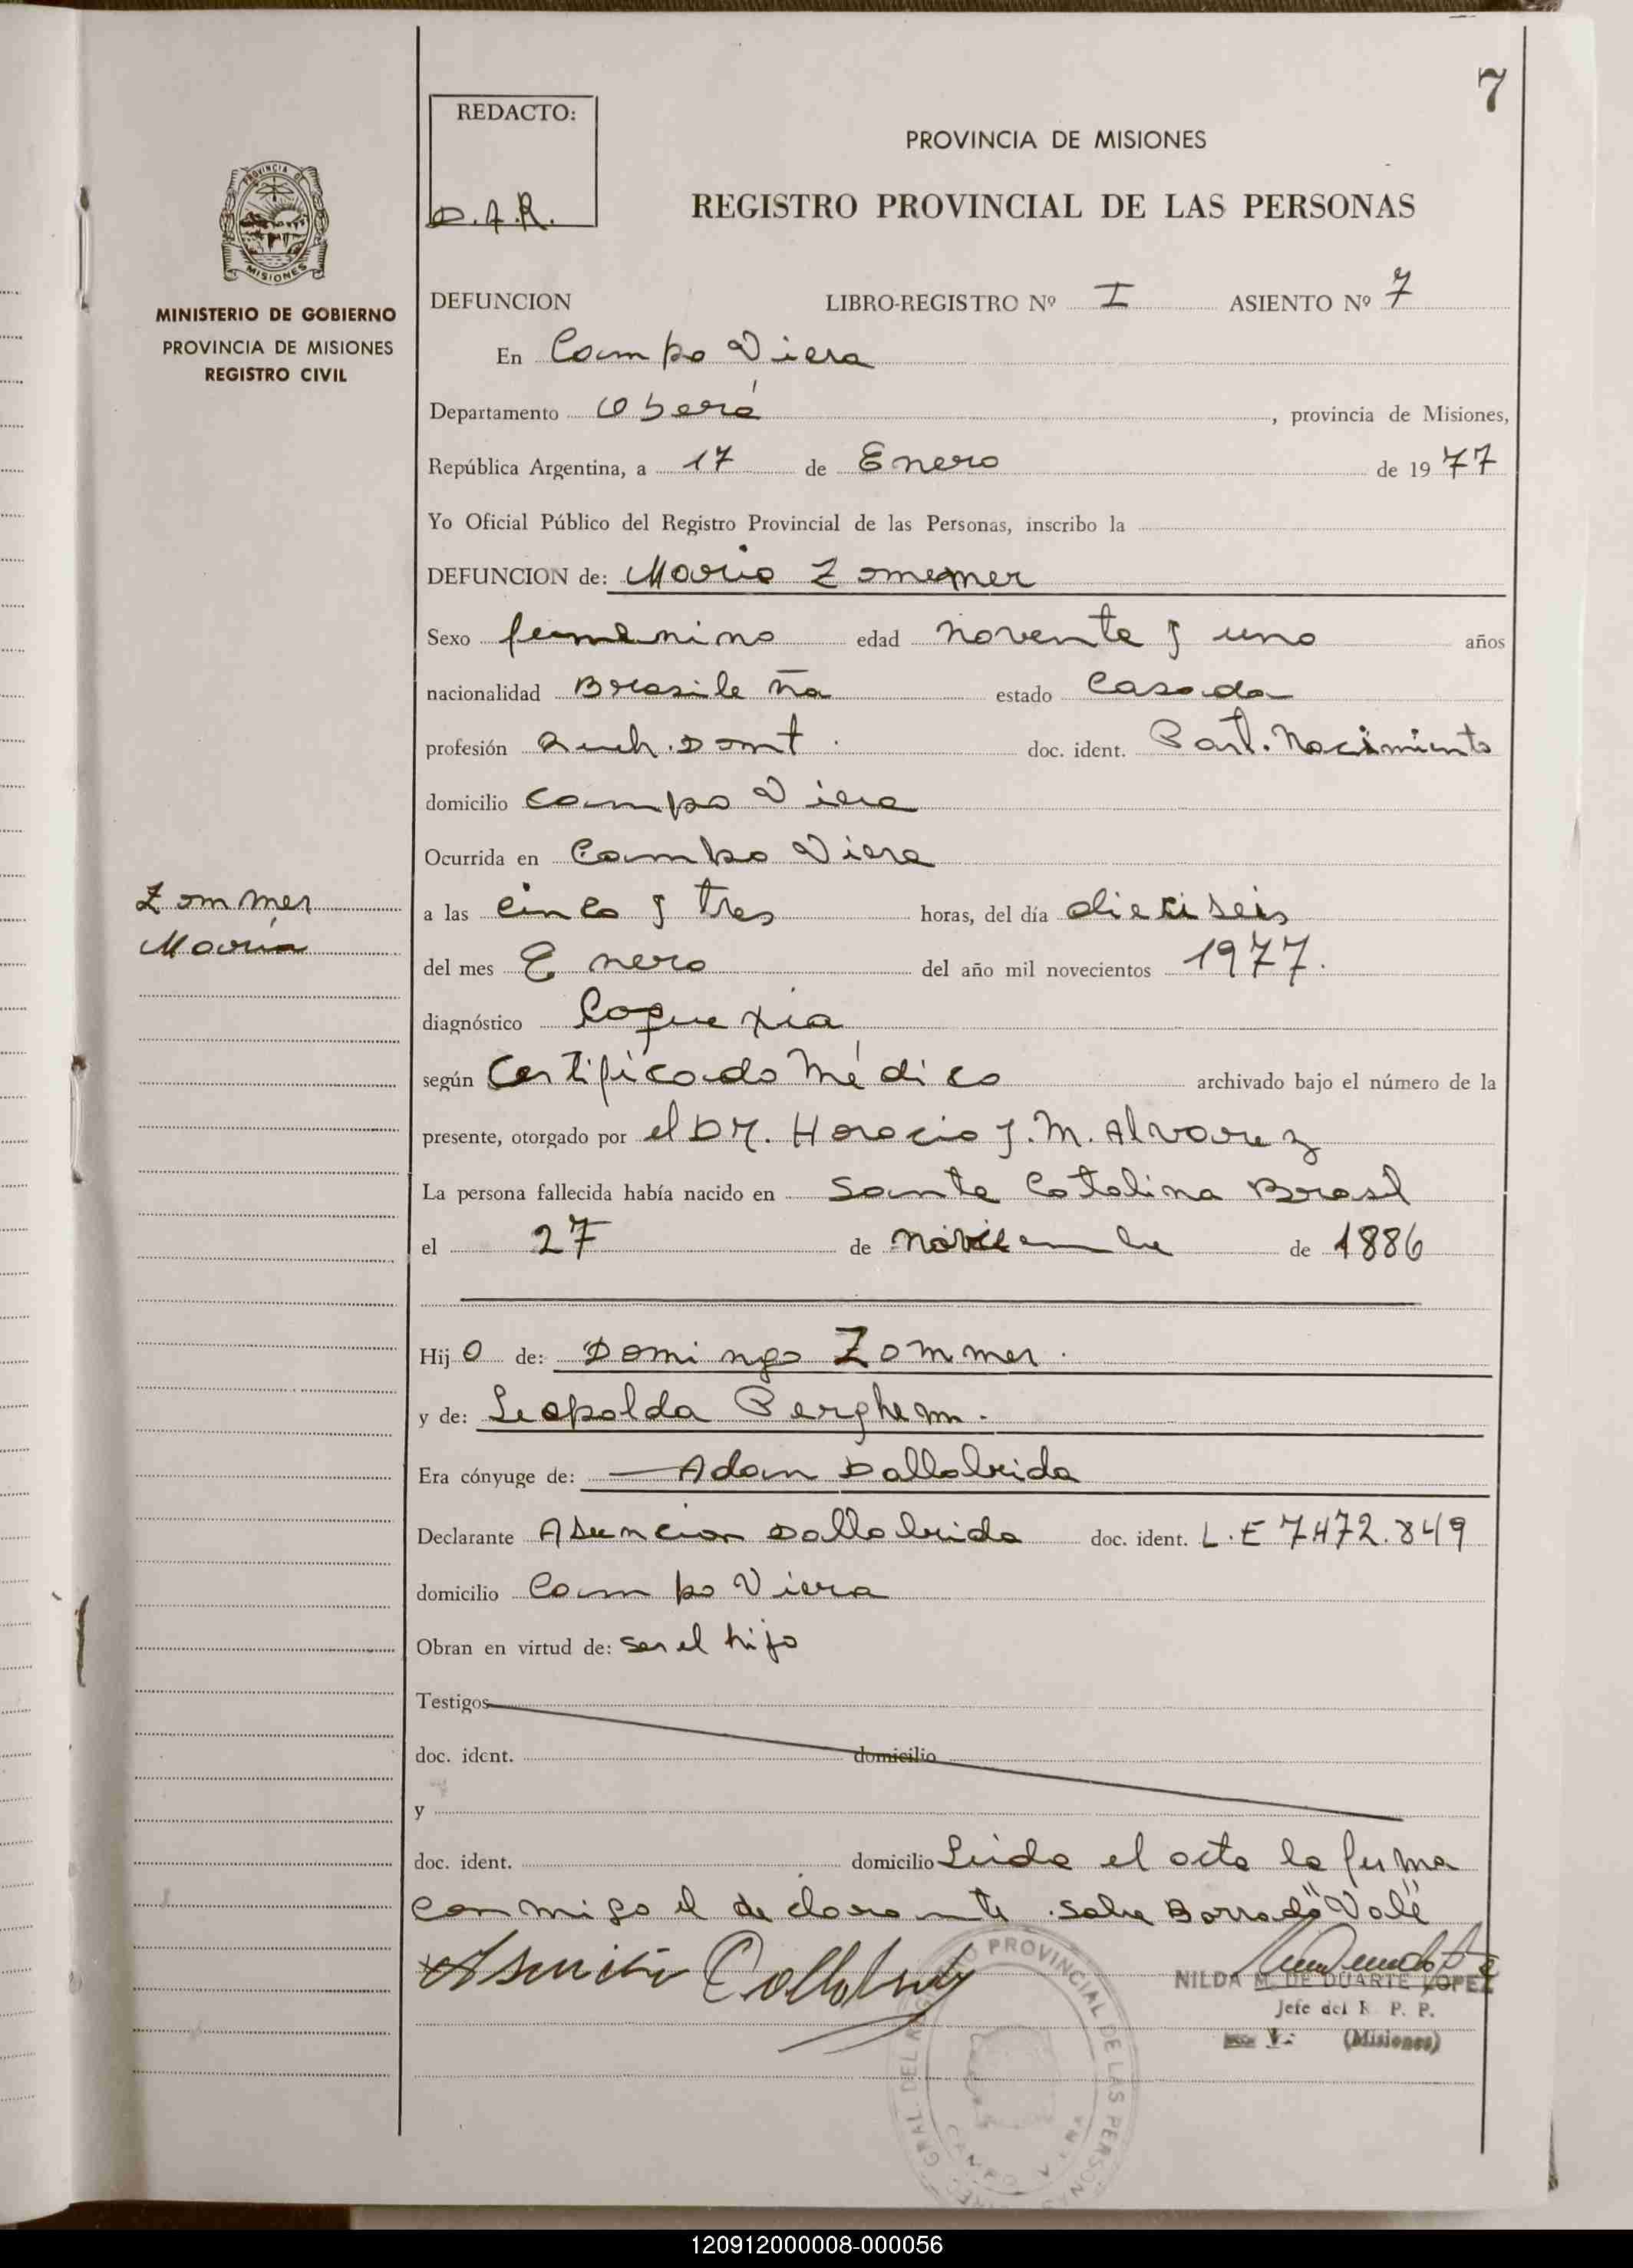 7
REDACTO:
D.A.R.
PROVINCIA DE MISIONES
REGISTRO PROVINCIAL DE LAS PERSONAS
PROVINCIA DE
MISIONES
MINISTERIO DE GOBIERNO
PROVINCIA DE MISIONES
REGISTRO CIVIL
DEFUNCION LIBRO-REGISTRO Nº I ASIENTO Nº 7
En Campo Viera
Departamento Oberá, provincia de Misiones,
República Argentina, a 17 de Enero de 1977
Yo Oficial Público del Registro Provincial de las Personas, inscribo la
DEFUNCION de: Maria
Sexo femenino edad noventa y uno años
nacionalidad Brasileña estado Casada
profesión doc. ident. Part. Nacimiento
domicilio Campo Viera
Ocurrida en Campo Viera
Zommer
María
a las cinco y tres horas, del día dieciseis
del mes Enero del año mil novecientos 1977.
diagnóstico Caquexia
según Certificado Médico archivado bajo el número de la
presente, otorgado por el Dr. Horacio J. M. Alvarez
La persona fallecida había nacido en Santa Catalina Brasil
el 27 de noviembre de 1886
Hijo de: Domingo Zommer.
y de: Leopolda Perghem.
Era cónyuge de: Adan Dallabrida
Declarante Asuncion Dallabrida doc. ident. L.E 7472.849
domicilio Campo Viera
Obran en virtud de: ser el hijo
Testigos
doc. ident. domicilio
y
doc. ident. domicilio Leida el acta la firma
conmigo el declarante. Sobre Borrado "Vale"
Asunción Dallabrida
NILDA M. DE DUARTE LOPEZ
Jefe del R. P. P.
(Misiones)
PROVINCIAL DE LAS PERSONAS
120912000008-000056